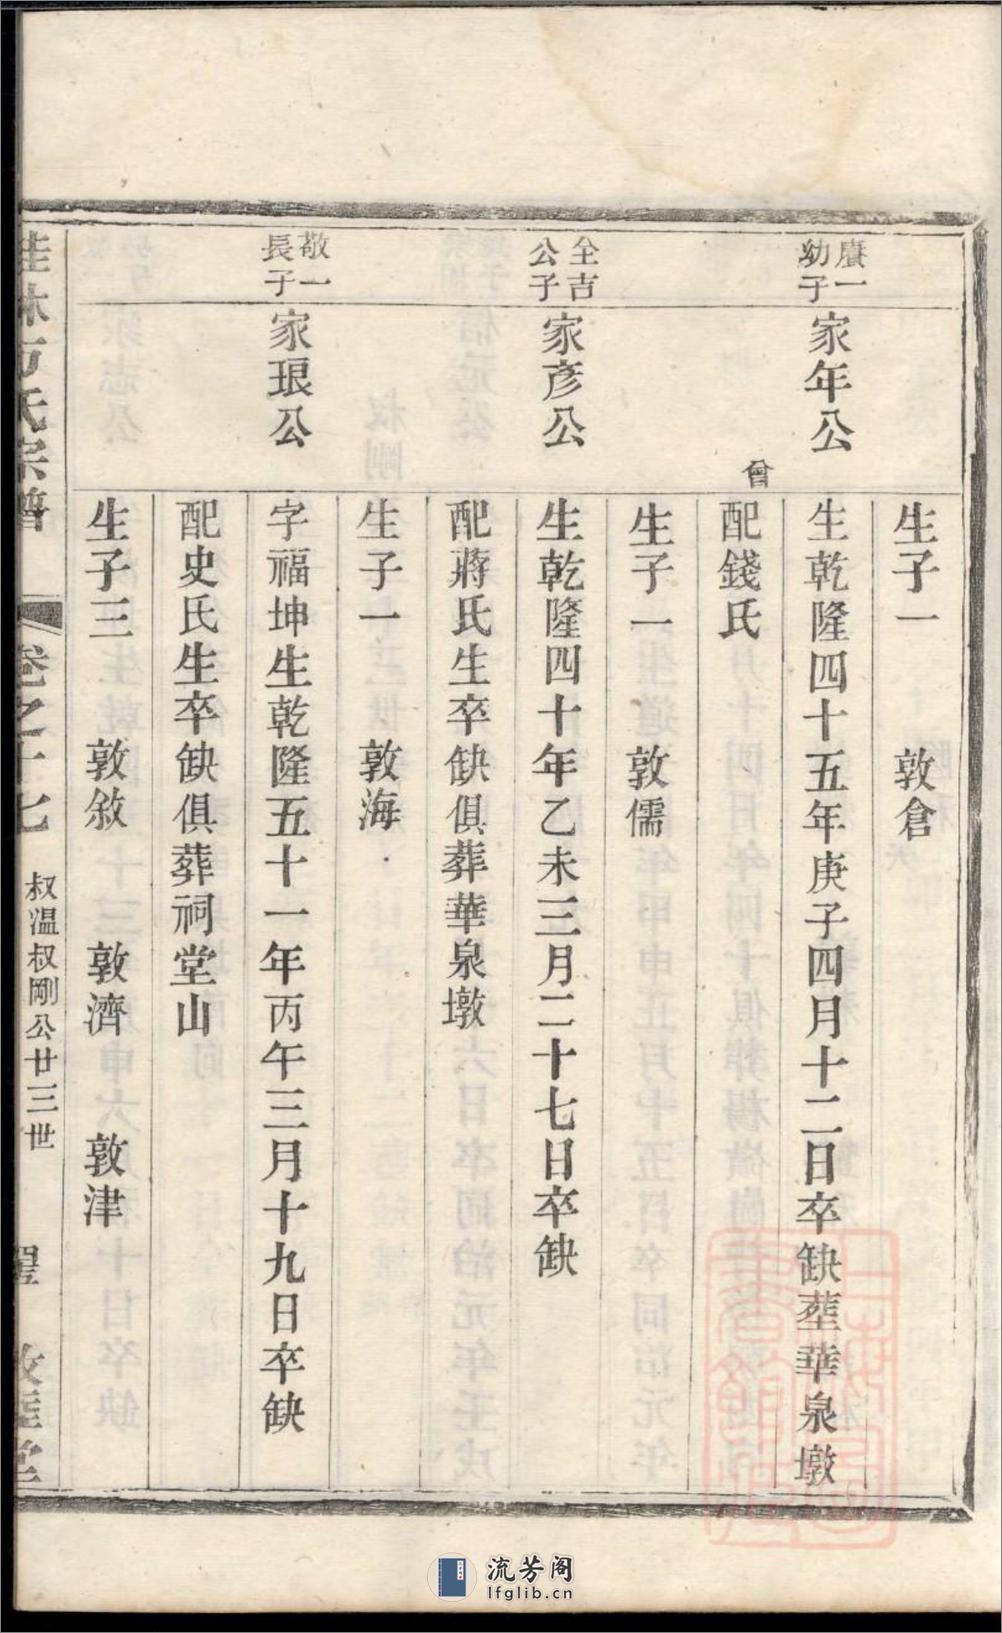 生子一 敦倉
賡一
幼子
家年公
生乾隆四十五年庚子四月十二日卒缺塟華泉墩
配錢氏
曾
生子一 敦儒
全吉
公子
家彥公
生乾隆四十年乙未三月二十七日卒缺
配蔣氏生卒缺俱葬華泉墩
生子一 敦海
敬一
長子
家琅公
字福坤生乾隆五十一年丙午三月十九日卒缺
配史氏生卒缺俱葬祠堂山
生子三 敦敘 敦濟 敦津
桂林方氏宗譜 卷之十七 叔溫叔剛公廿三世
流芳阁
lfglib.cn